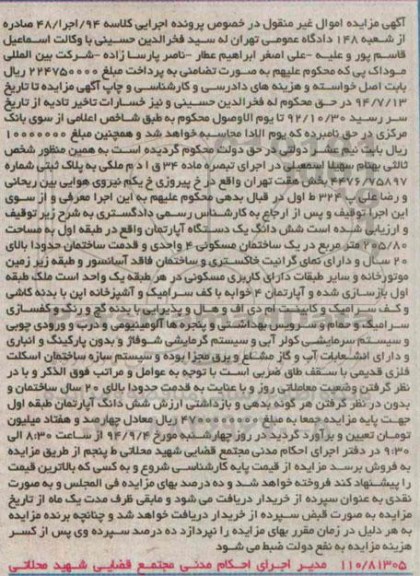 آگهی مزایده اموال غیر منقول در خصوص پرونده اجرایی کلاسه ۹۴/اجرا/۴۸ صادره
از شعبه ۱۴۸ دادگاه عمومی تهران له سید فخرالدین حسینی با وکالت اسماعیل
قاسم پور و علیه -علی اصغر ابراهیم عطار -ناصر پارسا زاده -شرکت بین المللی
موداک پی که محکوم علیهم به صورت تضامنی به پرداخت مبلغ ۲۲۴۷۵۰۰۰۰ ریال
بابت اصل خواسته و هزینه های دادرسی و کارشناسی و چاپ آگهی مزایده تا تاریخ
۹۴/۷/۱۳ در حق محکوم له فخرالدین حسینی و نیز خسارات تاخیر تادیه از تاریخ
سر رسید ۹۲/۱۰/۳۰ تا یوم الاوصول محکوم به طبق شاخص اعلامی از سوی بانک
مرکزی در حق نامبرده که یوم الادا محاسبه خواهد شد و همچنین مبلغ ۱۰۰۰۰۰۰۰
ریال بابت نیم عشر دولتی در حق دولت محکوم گردیده است به همین منظور شخص
ثالثی بنام سهیلا اسمعیلی در اجرای تبصره ماده ۳۴ ق ا م ملکی به پلاک ثبتی شماره
۴۴۷۶/۷۵۸۹۷ بخش هفت تهران واقع در خ پیروزی خ یکم نیروی هوایی بین ریحانی
و رضا علی پ ۳۲۴ ط اول در قبال بدهی محکوم علیهم به این اجرا معرفی و از سوی
این اجرا توقیف و پس از ارجاع به کارشناس رسمی دادگستری به شرح زیر توقیف
و ارزیابی شده است شش دانگ یک دستگاه آپارتمان واقع در طبقه اول به مساحت
۲۰۵/۸۰ متر مربع در یک ساختمان مسکونی ۴ واحدی و قدمت ساختمان حدودا بالای
۲۰ سال و دارای نمای گرانیت خاکستری و ساختمان فاقد آسانسور و طبقه زیر زمین
موتورخانه و سایر طبقات دارای کاربری مسکونی در هر طبقه یک واحد است ملک طبقه
اول بازسازی شده و آپارتمان ۴ خوابه با کف سرامیک و آشپزخانه اپن با بدنه کاشی
و کف سرامیک و کابینت ام دی اف و هال و پذیرایی با بدنه گچ و رنگ و کفسازی
سرامیک و حمام و سرویس بهداشتی و پنجره ها آلومینیومی و درب و ورودی چوبی
و سیستم سرمایشی کولر آبی و سیستم گرمایشی شوفاژ و بدون پارکینگ و انباری
و دارای انشعابات آب و گاز مشاع و برق مجزا بوده و سیستم سازه ساختمان اسکلت
فلزی قدیمی با سقف طاق ضربی است با توجه به عوامل و مراتب فوق الذکر و با در
نظر گرفتن وضعیت معاملاتی روز و با عنایت به قدمت حدودا بالای ۲۰ سال ساختمان و
بدون در نظر گرفتن هر گونه بدهی و بازداشتی ارزش شش دانگ آپارتمان طبقه اول
جهت پایه مزایده جمعا به مبلغ ریال معادل چهارصد و هفتاد میلیون
تومان تعیین و برآورد گردید در روز چهارشنبه مورخ ۹۴/۹/۴ از ساعت ۸:۳۰ الی
۹:۳۰ در دفتر اجرای احکام مدنی مجتمع قضایی شهید محلاتی ط پنجم از طریق مزایده
به فروش برسد مزایده از قیمت پایه کارشناسی شروع و به کسی که بالاترین قیمت
را پیشنهاد کند فروخته خواهد شد و ده درصد بهای مزایده فی المجلس و به صورت
نقدی به عنوان سپرده از خریدار دریافت می شود و مابقی ظرف مدت یک ماه از تاریخ
مزایده به صورت قبض سپرده از خریدار دریافت خواهد شد و چنانچه برنده مزایده
به هر دلیل در زمان مقرر بهای مزایده را نپردازد ده درصد سپرده وی پس از کسر
هزینه مزایده به نفع دولت ضبط می شود
۱۱۰/۸۱۳۰۵ مدیر اجرای احکام مدنی مجتمع قضایی شهید محلاتی